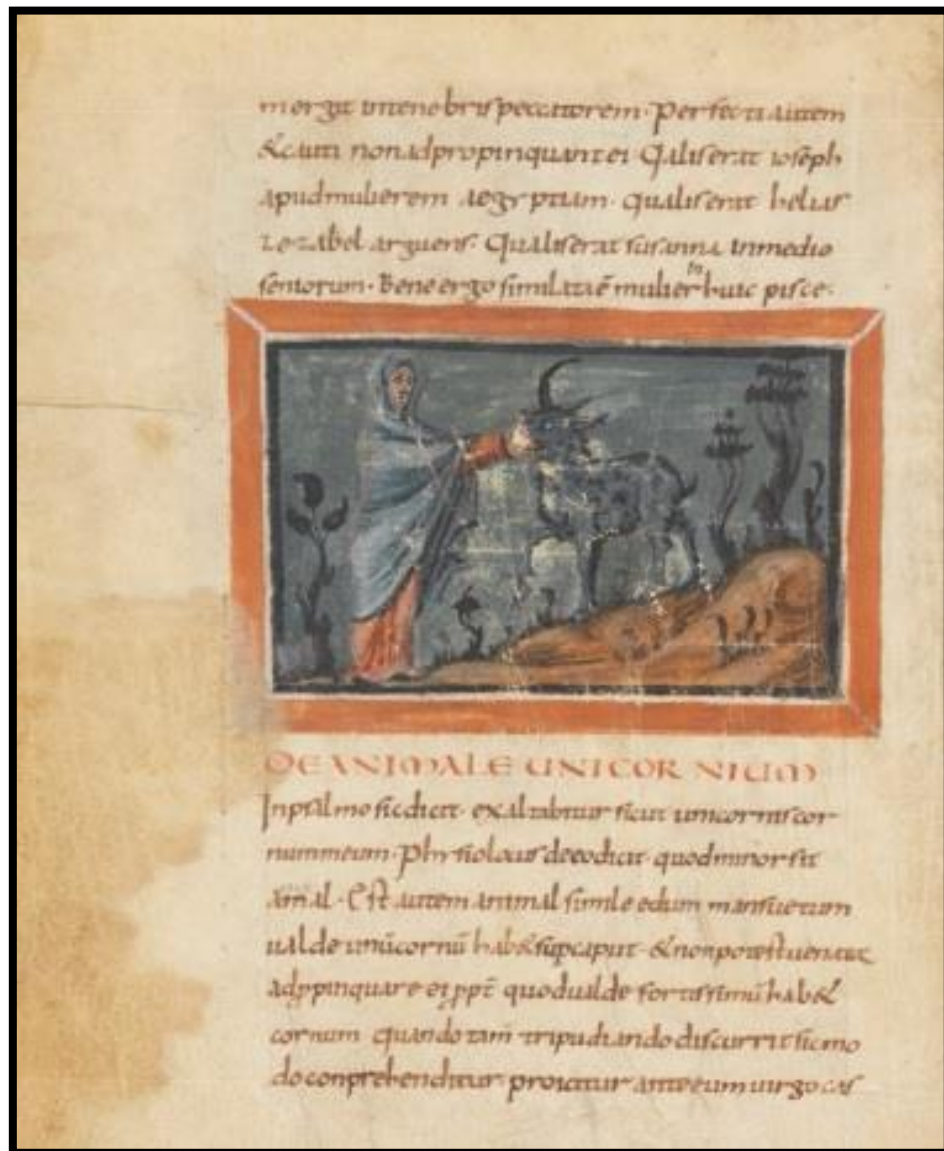 mergit intenebris peccatorem. Perfecti autem
&cauti nonadpropinquant ei Qaliserat ioseph
apudmulierem aegyptiam. qualiserat helias
zezabel arguens. Qualiserat susanna inmedio
seniorum. Bene ergo similata ē mulier huic pisce.
in
DE ANIMALE UNICORNIUM
Inpsalmo sicdicit. exaltabitur sicut unicornis cor
nummeum. Phisiolocus deeodicit. quodminor sit
animal. Est autem animal simile edum mansuetum
ualde unūcornū hab& supcaput. &nonpotest uenator
adppinquare ei ppt quodualde fortissimū hab&
cornum quando tam tripudiando discurrit sicmo
do conprehenditur. proicitur anteeum uirgo cas